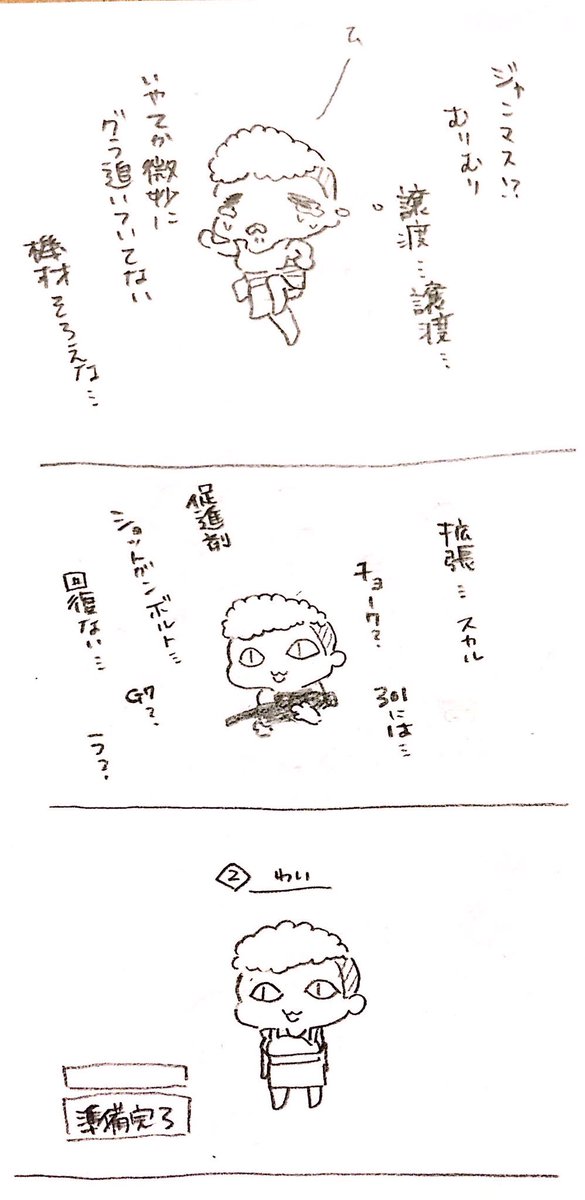 ジャンマス!?
むりむり
譲渡…譲渡…
いやてか微妙に
グラ追いついてない
機材そろえな…
拡張…スカル
チョーク?
301には…
促進剤
ショットガンボルト…
G7?
回復ない…
2 わい
準備完了